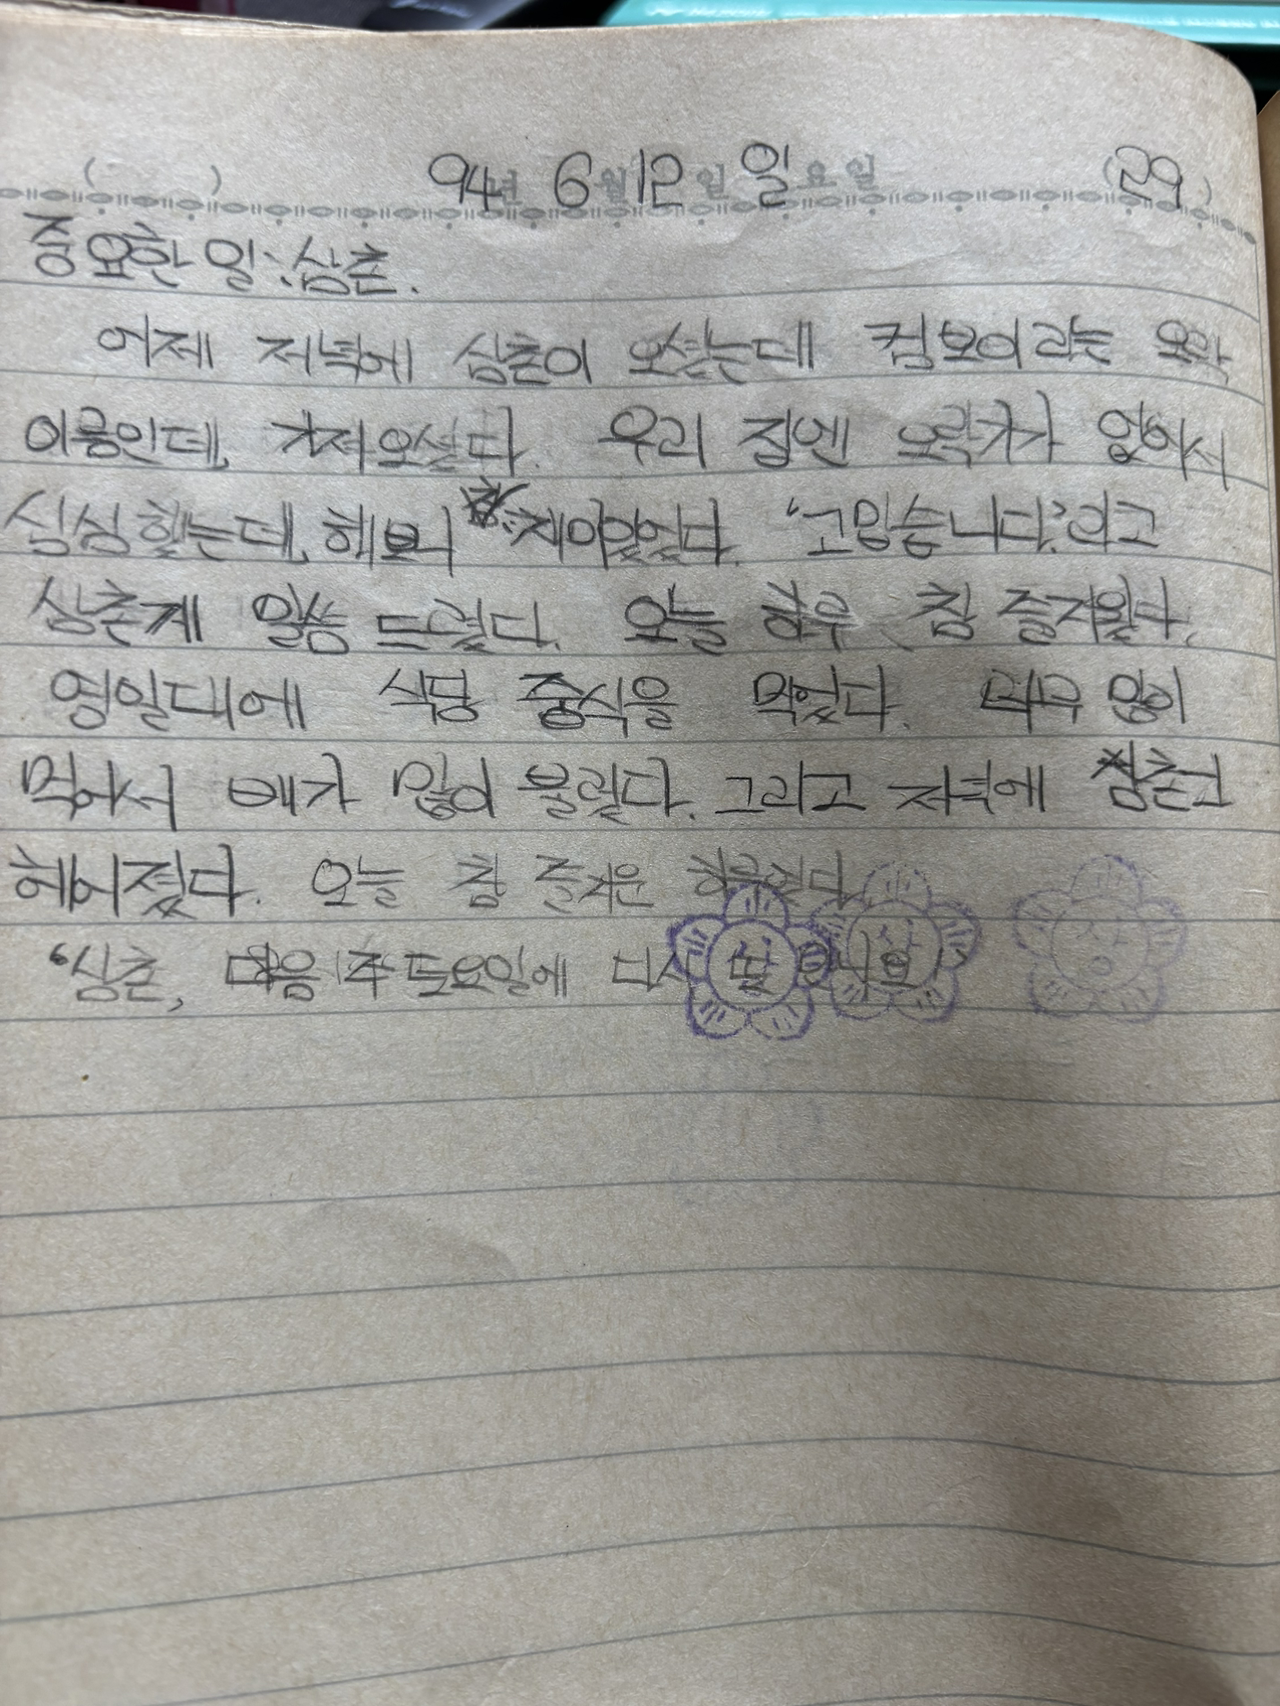 94년 6월 12일 일요일 (29)
중요한 일: 삼촌.
어제 저녁에 삼촌이 오셨는데 컴보이라는 오락
이름인데, 가저오셨다. 우리 집엔 오락기가 없어서
심심했는데, 해보니 참 재미있었다. '고맙습니다.'라고
삼촌게 말씀 드렸다. 오늘 하루, 참 즐거웠다.
영일대에 식당 중식을 먹었다. 먹고 많이
먹어서 배가 많이 불렀다. 그리고 저녁에 삼촌고
헤어졌다. 오늘 참 즐거운 하루였다.
"삼촌, 다음 주 토요일에 다시